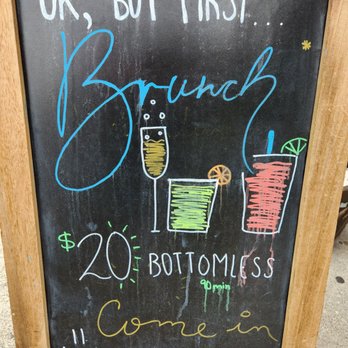 OK, BUT FIRST...
Brunch
$20 BOTTOMLESS
90min
Come in